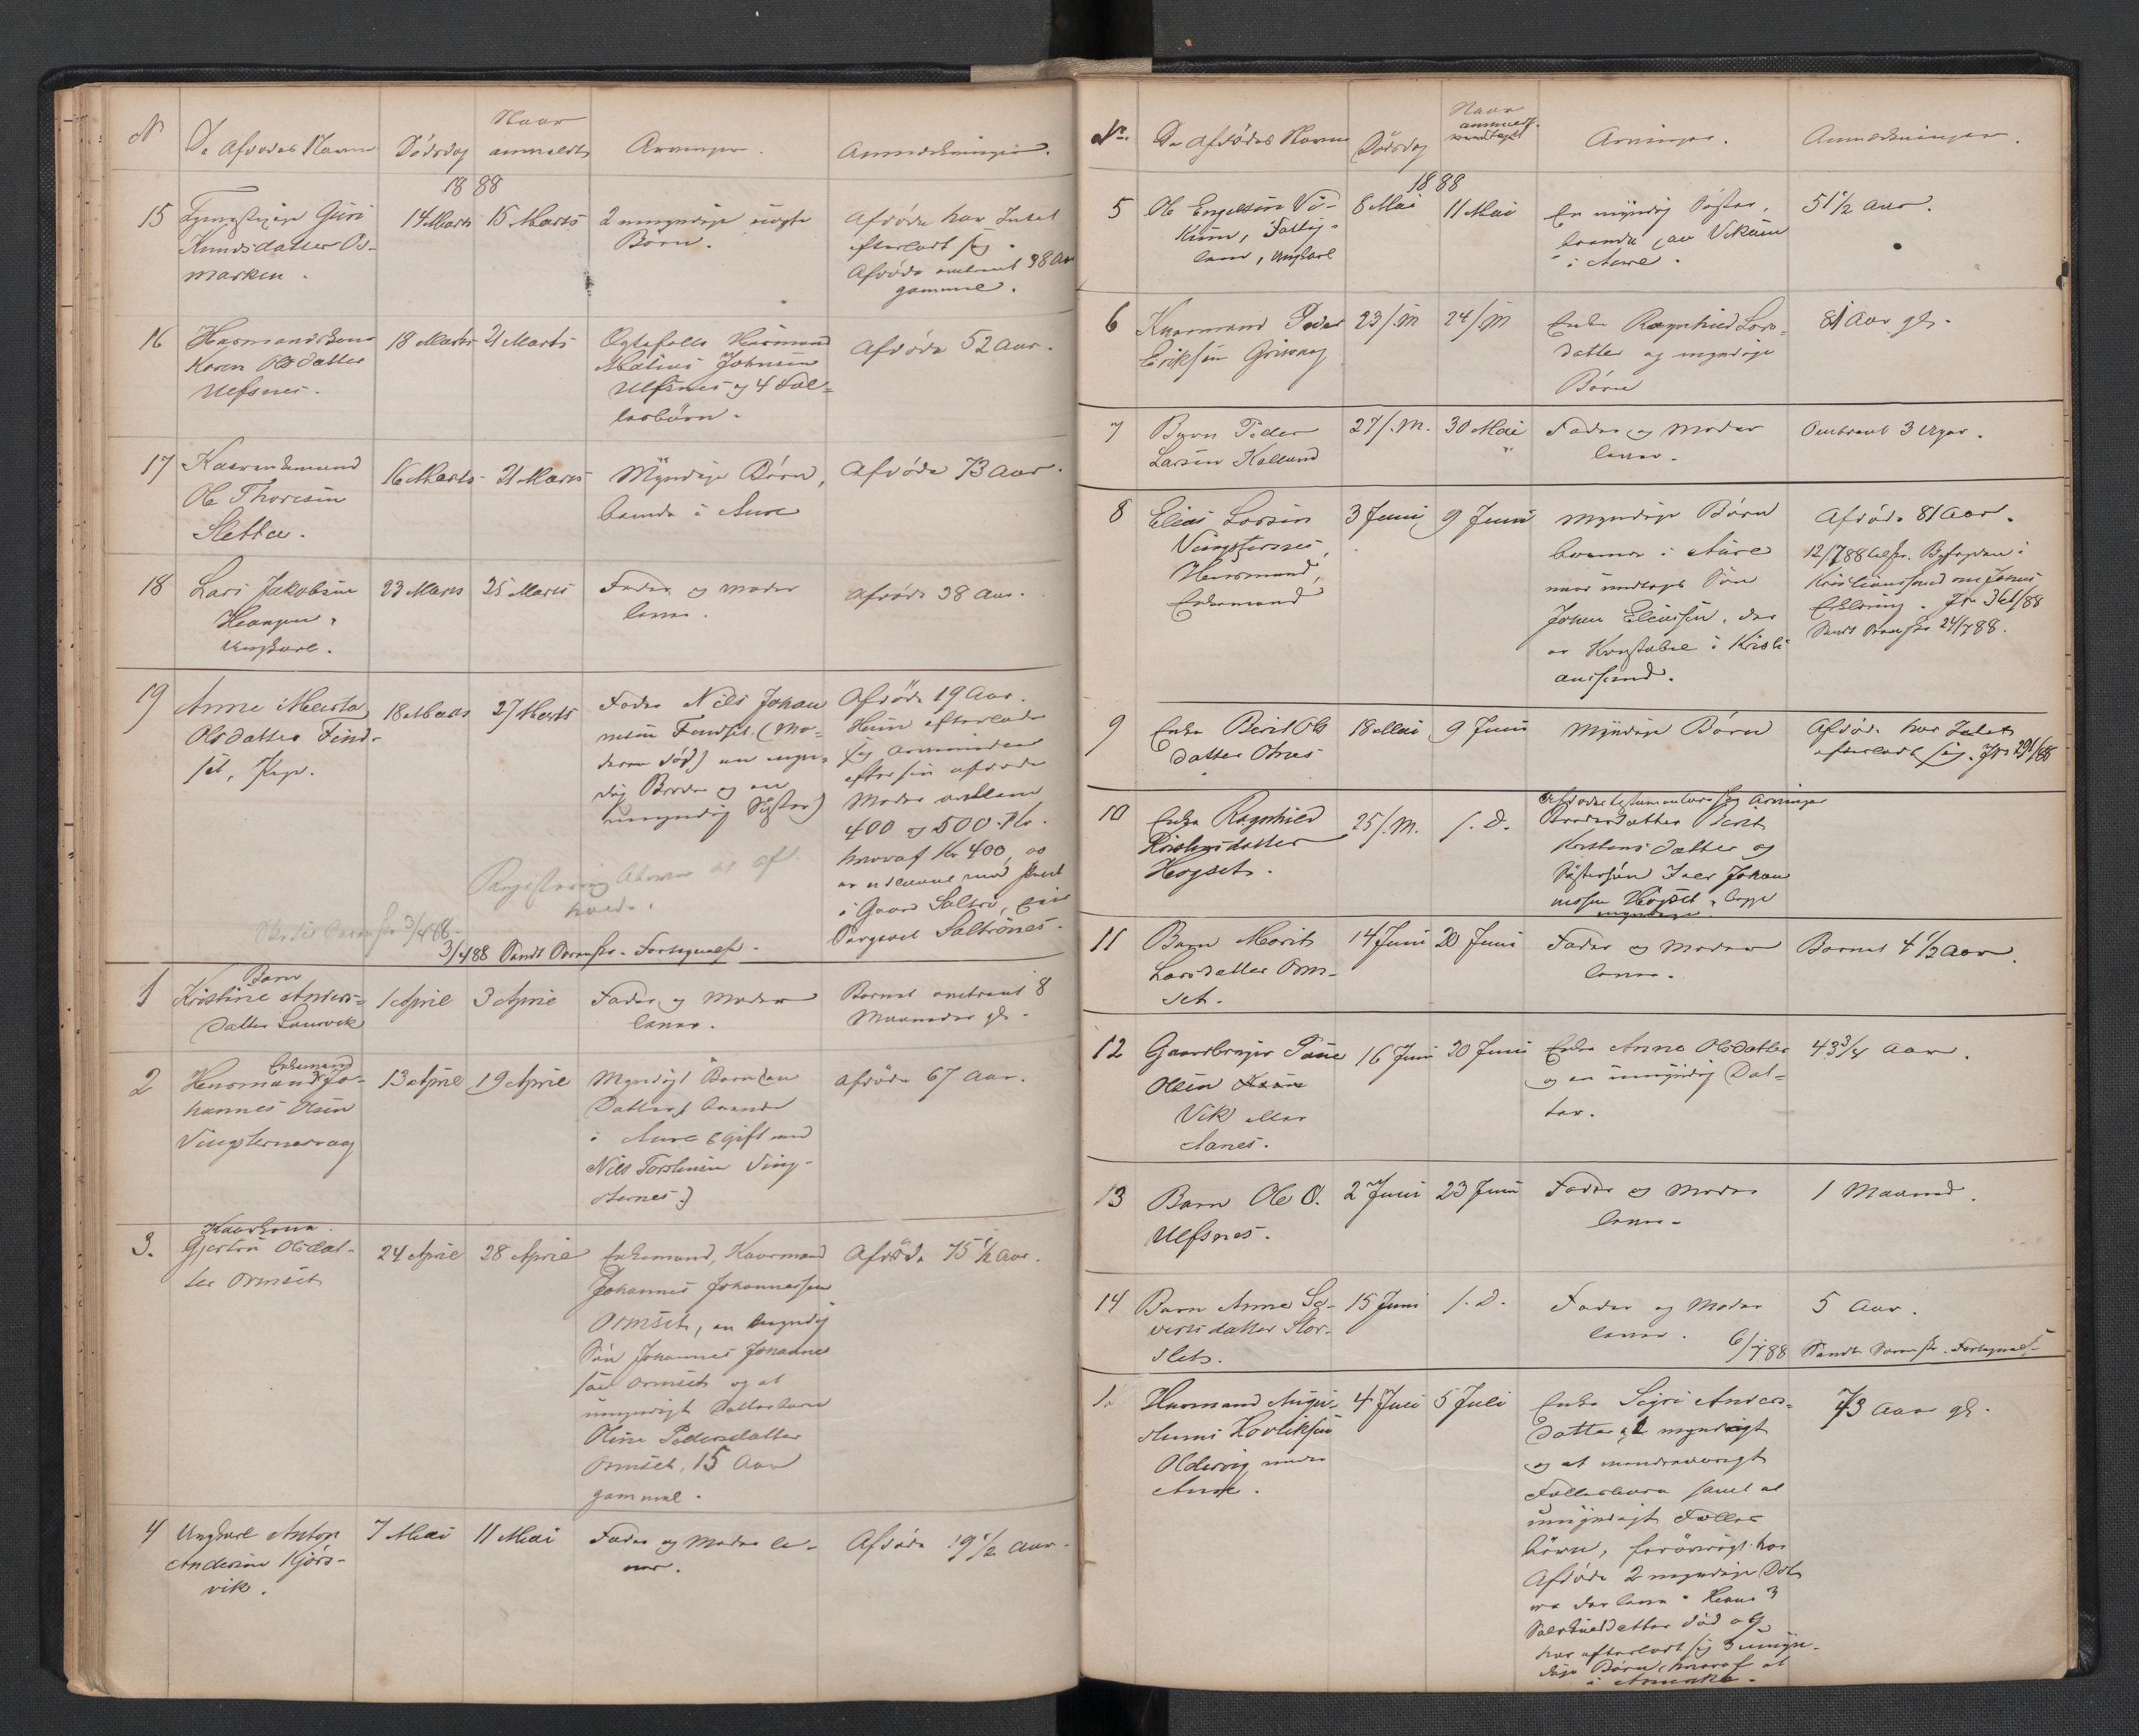 No
De Afdødes Navne
Dødsdag
Naar
anmeldt
Arvinger.
Anmerkninger.
1888
15
Guri
Knudsdatter Os-
marken.
14 Marts
15 Marts
2 umyndige uægte
Børn.
Afdøde har Intet
efterladt sig.
Afdøde omtrent 38 Aar
gammel.
16
Husmandskone
Karen Olsdatter
Ulfsnes.
18 Marts
21 Marts
Ægtefælle Husmand
Johnsen
Ulfsnes og 4 Fæl-
lesbørn.
Afdøde 52 Aar.
17
Kaarenkemand
Ole Thoresen
Sletta.
16 Marts
21 Marts
Myndige Børn,
boende i Aure
Afdøde 73 Aar.
18
Lars Jakobsen
Ungkarl.
23 Marts
25 Marts
Fader og Moder
lever.
Afdøde 38 Aar.
19
Anne Marta
Olsdatter Find-
set, Pige.
18 Marts
27 Marts
Fader Nils Johan
nesen Findset. (Mo-
deren død) en myn-
dig Broder og en
umyndig Søster)
Afdøde 19 Aar.
Hun efterlader
sig Arvemidler
efter sin afdøde
Moder mellem
400 og 500 Kr.
hvoraf Kr 400, 00
er udlaant mod Pant
i Gaard Saltrø, Eier
Saltrönes.
3/4 88 Sendt Sorenskr. Fortegnelse.
1
Barn
Kristine Anders-
datter Laurvik
1 April
3 April
Fader og Moder
lever.
Barnet omtrent 8
Maaneder gl.
2
Enkemand
Husmand Jo-
hannes Olsen
Vingsternesvaag
13 April
19 April
Myndigt Barn (en
Datter) boende
i Aure (gift med
Nils Torstensen Ving-
sternes)
Afdöde 67 Aar.
3.
Kaarkone.
Gjertru Olsdat-
ter Ormset
24 April
28 April
Enkemand, Kaarmand
Johannes Johannessen
Ormset, en myndig
Søn Johannes Johannes
sen Ormset og et
umyndigt Datterbarn
Oline Pedersdatter
Ormset, 15 Aar
gammel.
Afdöde 75 1/2 Aar.
4
Ungkarl Anton
Andersen Kjørs-
vik.
7 Mai
11 Mai
Fader og Moder le-
ver.
Afdöde 19 1/2 Aar.
No.
De Afdødes Navne
Dödsdag
Naar
anmeldt.
Arvinger.
Anmerkninger.
1888
5
Ole Engelsen Vi-
kum, Fattig-
lem, Ungkarl
8 Mai
11 Mai
En myndig Søster,
boende paa Vikum
i Aure.
51 1/2 Aar.
6
Kaarmand Peder
Eriksen Grisvaag
23/. M
24/. M
Enke Ragnhild Lars-
datter og myndige
Børn
81 Aar gl.
7
Barn Peder
Larsen Kalland
27/. M.
30 Mai
Fader og Moder
lever.
Omtrent 3 Uger.
8
Elias Larsen
Vingsternes,
Husmand,
Enkemand
3 Juni
9 Juni
Myndige Børn
boende i Aure
naar undtages Søn
Johan Eliassen, der
er Konstabel i Kristi-
anssund.
Afdøde 81 Aar.
12/7 88 tilskr. Byfogden i
Kristianssund om Johans
Erklæring. Jr 361/88
Sendt Sorenskr 24/7 88.
9
Enke Berit Ols
datter Otnes
18 Mai
9 Juni
Myndige Børn
Afdøde har Intet
efterladt sig. Jr 291/88
10
Enke Ragnhild
Kristensdatter
Hogset.
25/. M.
s. D.
Afdødes testamentariske Arvinger
Broderdatter Berit
Kristensdatter og
Søstersøn Iver Johan
nessen Høgset, begge
myndige.
11
Barn Marit
Larsdatter Orm-
set.
14 Juni
20 Juni
Fader og Moder
lever.
Barnet 4 1/2 Aar.
12
Gaardbruger Paul
Olsen
Vik eller
Aanes.
16 Juni
20 Juni
Enke Anne Olsdatter
og en umyndig Dat-
ter.
43 3/4 Aar.
13
Barn Ole O.
Ulfsnes.
2 Juni
23 Juni
Fader og Moder
lever.
1 Maaned.
14
Barn Anne Si-
vertsdatter Stor-
slet.
15 Juni
s. D.
Fader og Moder
lever.
5 Aar.
6/7 88 Sendt Sorenskr. Fortegnelse
1.
Husmand Augu-
stinus Hovliksen
Oldervig under
Aure.
4 Juli
5 Juli
Enke Sigri Anders-
datter, 2 myndigt
og et mindreaarigt
Fællesbarn samt et
umyndigt Fælles
børn, forøvrigt har
Afdøde 2 myndige Døt
re der lever. Hans 3
Datter død og
har efterladt sig 3 umyn-
dige Børn, hvoraf et
i Amerika.
73 Aar gl.